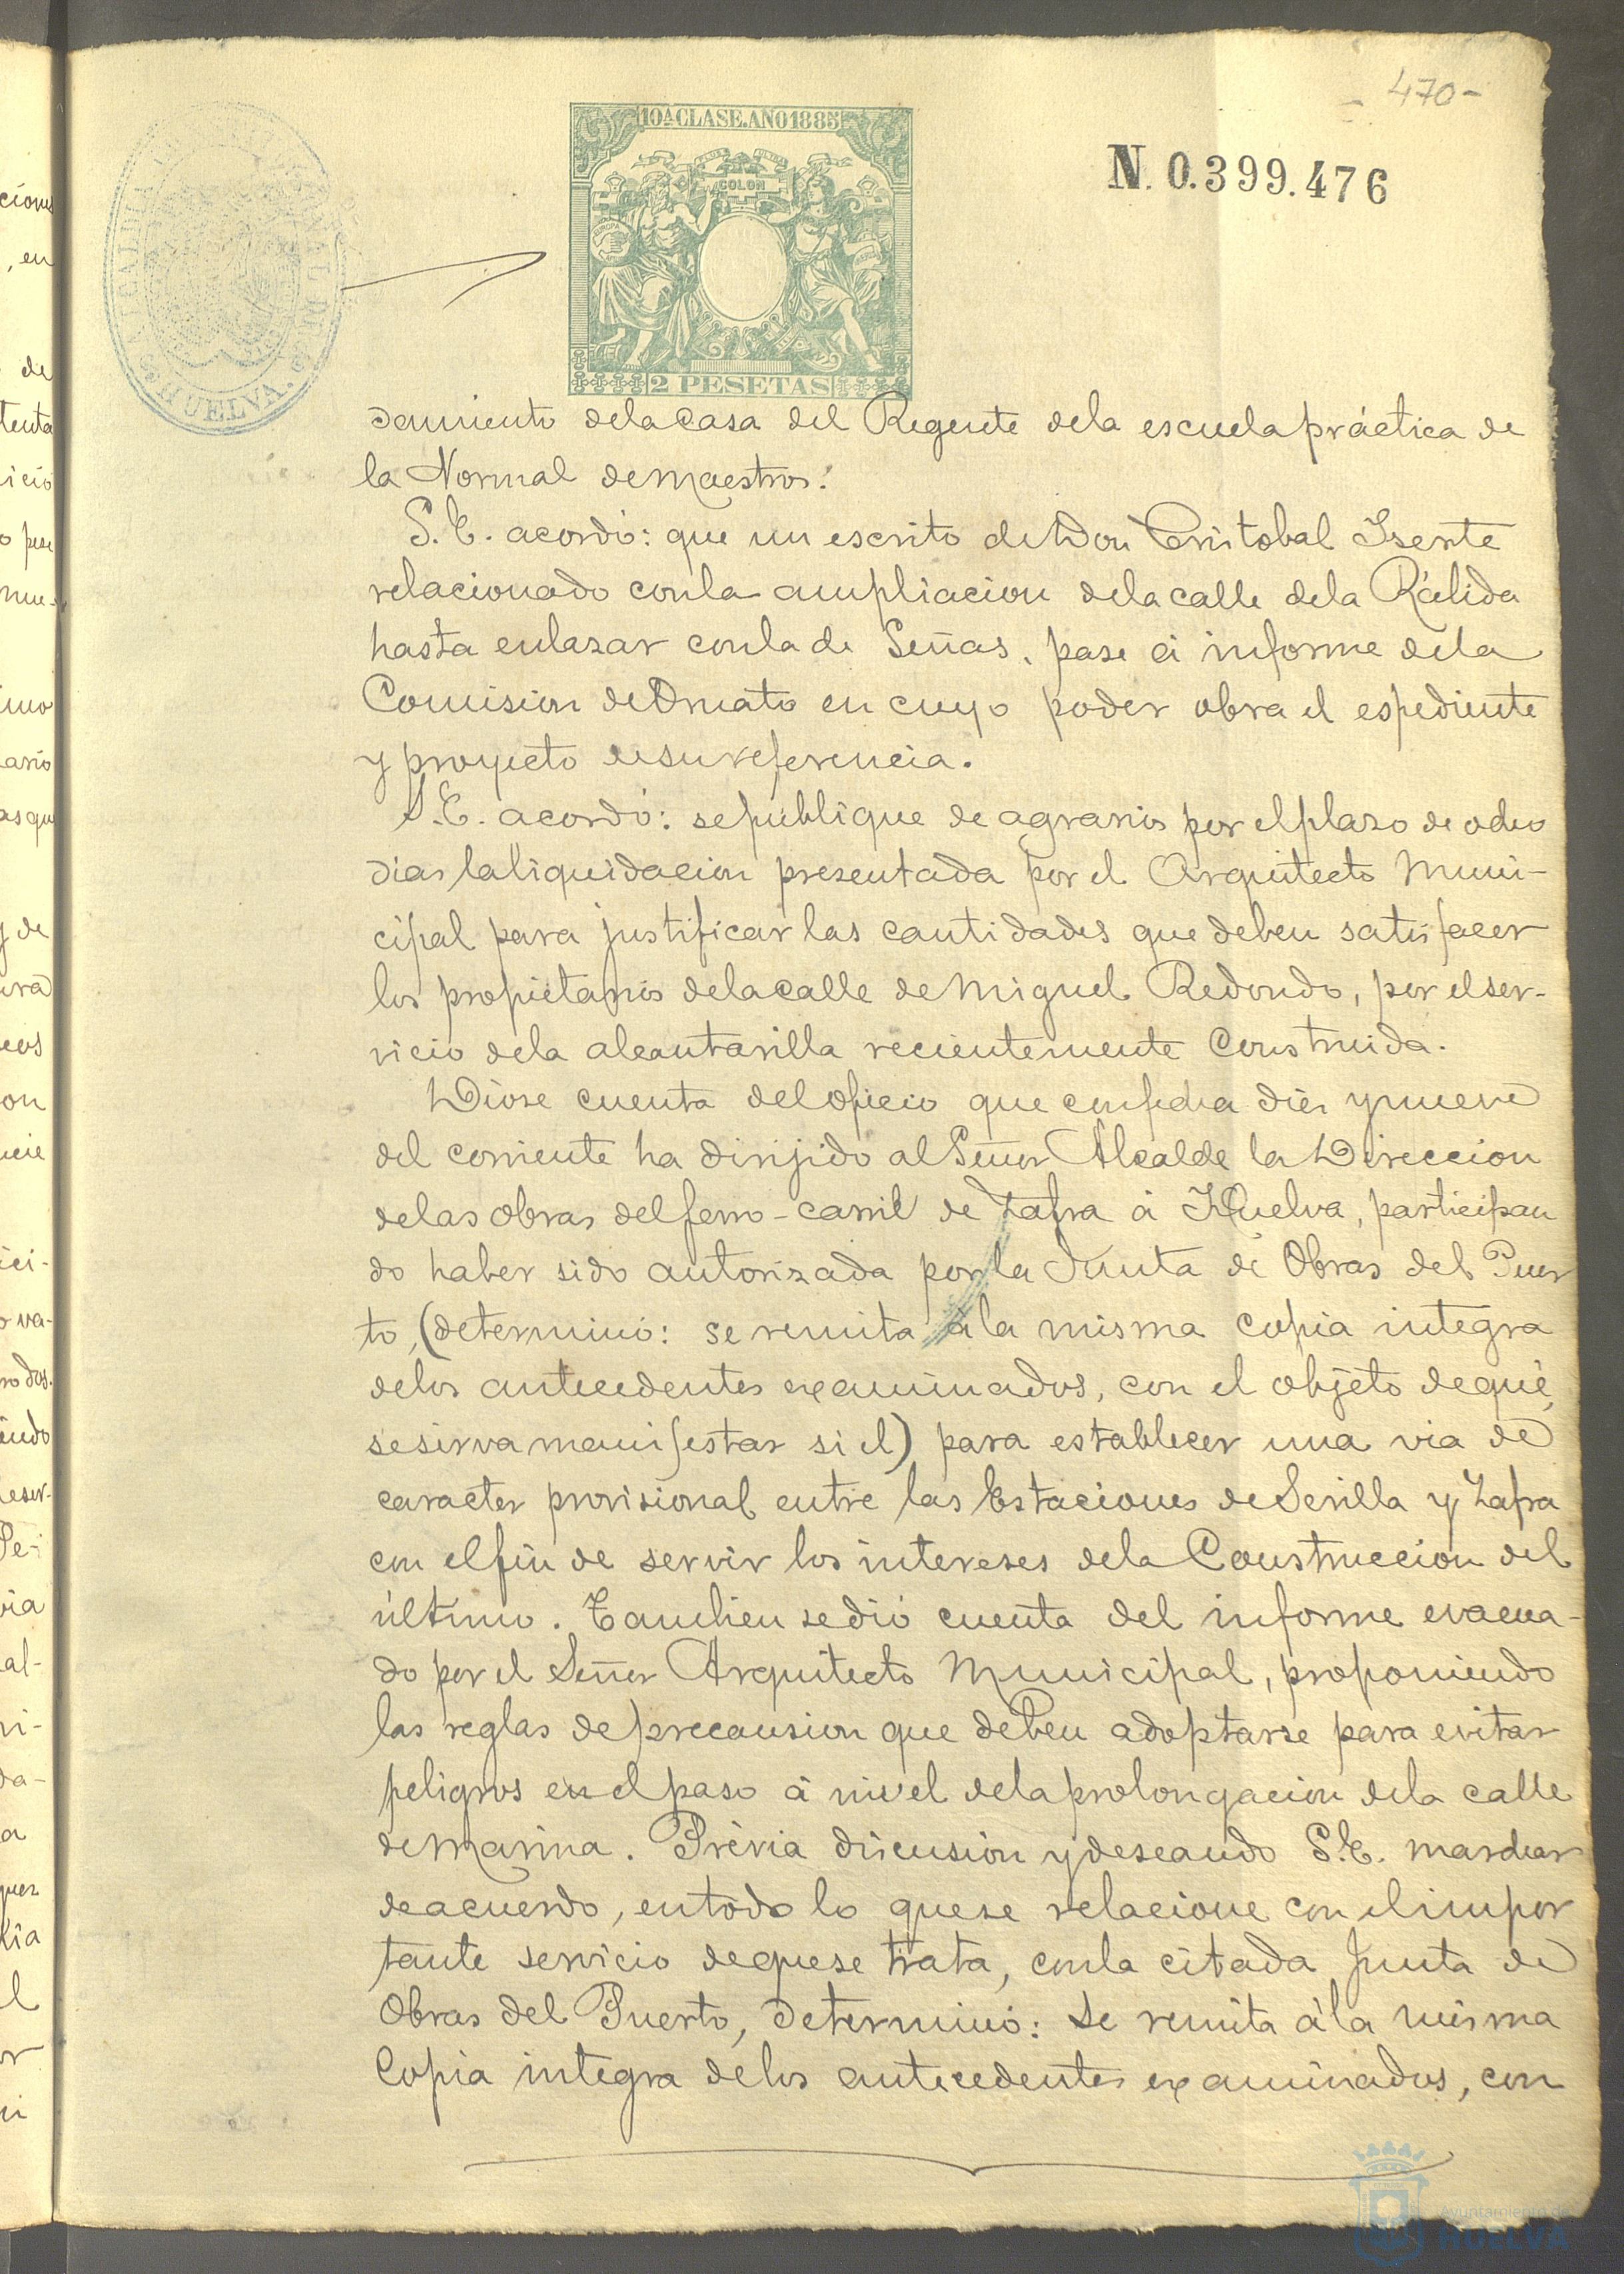 470-
10ª CLASE. AÑO 1885
COLON
N. 0.399.476
2 PESETAS
HUELVA.
damiento de la casa del Regente de la escuela práctica de
la Normal de Maestros.
S. E. acordó: que un escrito de Don Cristobal Iserte
relacionado con la ampliacion de la calle de la Rábida
hasta enlazar con la de Señas, pase á informe de la
Comision de Ornato en cuyo poder obra el espediente
y proyecto de su referencia.
S. E. acordó: se publique de agravios por el plazo de ocho
dias la liquidacion presentada por el Arquitecto Muni-
cipal para justificar las cantidades que deben satisfacer
los propietarios de la calle de Miguel Redondo, por el ser-
vicio de la alcantarilla recientemente construida.
Dióse cuenta del oficio que con fecha diez y nueve
del corriente ha dirijido al Señor Alcalde la Direccion
de las obras del ferro-carril de Zafra á Huelva, participan
do haber sido autorizada por la Junta de Obras del Puer
to, (determinó: se remita á la misma copia integra
de los antecedentes examinados, con el objeto de que
se sirva manifestar si el) para establecer una via de
caracter provisional entre las Estaciones de Sevilla y Zafra
con el fin de servir los intereses de la Construccion del
último. Tambien se dió cuenta del informe evacua-
do por el Señor Arquitecto Municipal, proponiendo
las reglas de precausion que deben adoptarse para evitar
peligros en el paso á nivel de la prolongacion de la calle
de Marina. Prévia discusion y deseando S. E. marchar
de acuerdo, en todo lo que se relacione con el impor
tante servicio de que se trata, con la citada Junta de
Obras del Puerto, determinó: Se remita á la misma
Copia integra de los antecedentes examinados, con
Ayuntamiento de
HUELVA